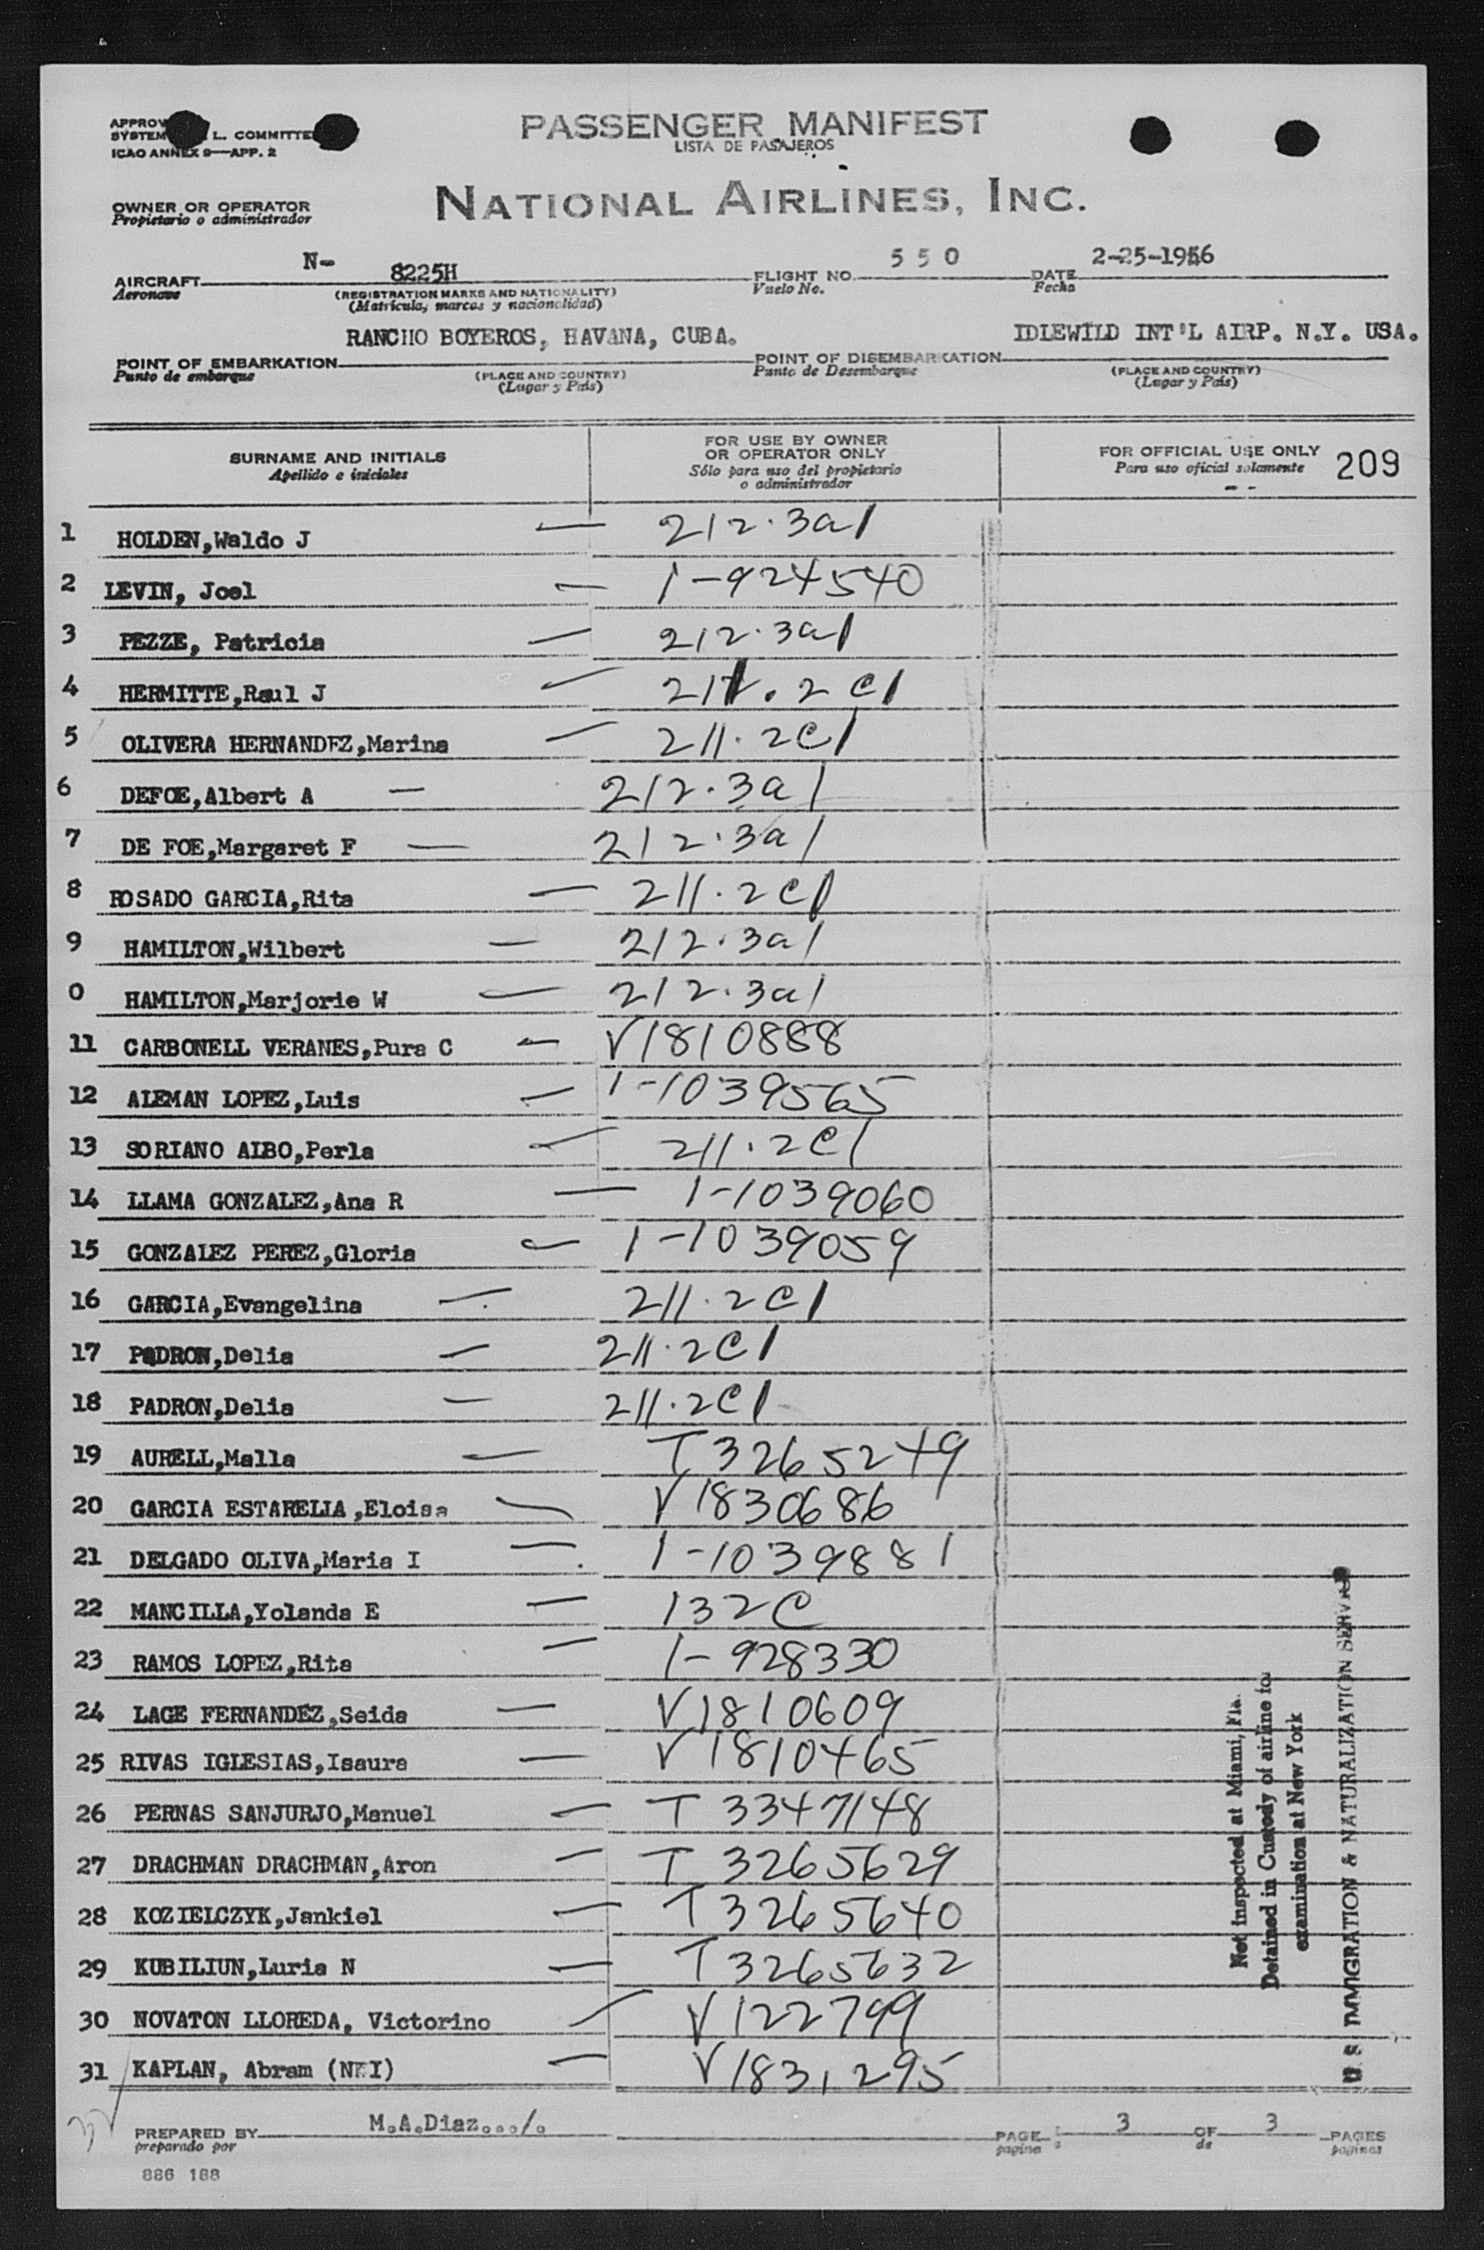 PASSENGER MANIFEST
LISTA DE PASAJEROS
L. COMMITTEE
ICAO ANNEX 9—APP. 2
NATIONAL AIRLINES, INC.
OWNER OR OPERATOR
Propietario o administrador
AIRCRAFT N- 8225H FLIGHT NO. 550 DATE 2-25-1956
Aeronave (REGISTRATION MARKS AND NATIONALITY) Vuelo No. Fecha
(Matricula, marcas y nacionalidad)
RANCHO BOYEROS, HAVANA, CUBA. IDLEWILD INT'L AIRP. N.Y. USA.
POINT OF EMBARKATION POINT OF DISEMBARKATION
Punto de embarque (PLACE AND COUNTRY) Punto de Desembarque (PLACE AND COUNTRY)
(Lugar y País) (Lugar y País)
SURNAME AND INITIALS FOR USE BY OWNER OR OPERATOR ONLY FOR OFFICIAL USE ONLY 209
Apellido e iniciales Sólo para uso del propietario o administrador Para uso oficial solamente
1 HOLDEN,Waldo J — 212.3a1
2 LEVIN, Joel — 1-924540
3 PEZZE, Patricia — 212.3a1
4 HERMITTE,Raul J — 211.2C1
5 OLIVERA HERNANDEZ,Marina — 211.2C1
6 DEFOE,Albert A — 212.3a1
7 DE FOE,Margaret F — 212.3a1
8 ROSADO GARCIA,Rita — 211.2C1
9 HAMILTON,Wilbert — 212.3a1
0 HAMILTON,Marjorie W — 212.3a1
11 CARBONELL VERANES,Pura C — V1810888
12 ALEMAN LOPEZ,Luis — 1-1039565
13 SORIANO AIBO,Perla — 211.2C1
14 LLAMA GONZALEZ,Ana R — 1-1039060
15 GONZALEZ PEREZ,Gloria — 1-1039059
16 GARCIA,Evangelina — 211.2C1
17 PADRON,Delia — 211.2C1
18 PADRON,Delia — 211.2C1
19 AURELL,Malla — T3265249
20 GARCIA ESTARELLA,Eloisa — V1830686
21 DELGADO OLIVA,Maria I — 1-1039881
22 MANCILLA,Yolanda E — 132C
23 RAMOS LOPEZ,Rita — 1-928330
24 LAGE FERNANDEZ,Seida — V1810609
25 RIVAS IGLESIAS,Isaura — V1810465
26 PERNAS SANJURJO,Manuel — T3347148
27 DRACHMAN DRACHMAN,Aron — T3265629
28 KOZIELCZYK,Jankiel — T3265640
29 KUBILIUN,Luria N — T3265632
30 NOVATON LLOREDA, Victorino V122799
31 KAPLAN, Abram (NEI) — V1831295
Not inspected at Miami, Fla.
Detained in Custody of airline for
examination at New York
U. S. IMMIGRATION & NATURALIZATION SERVICE
PREPARED BY M.A.Diaz.../. PAGE 3 OF 3 PAGES
preparado por pagina de paginas
886 188